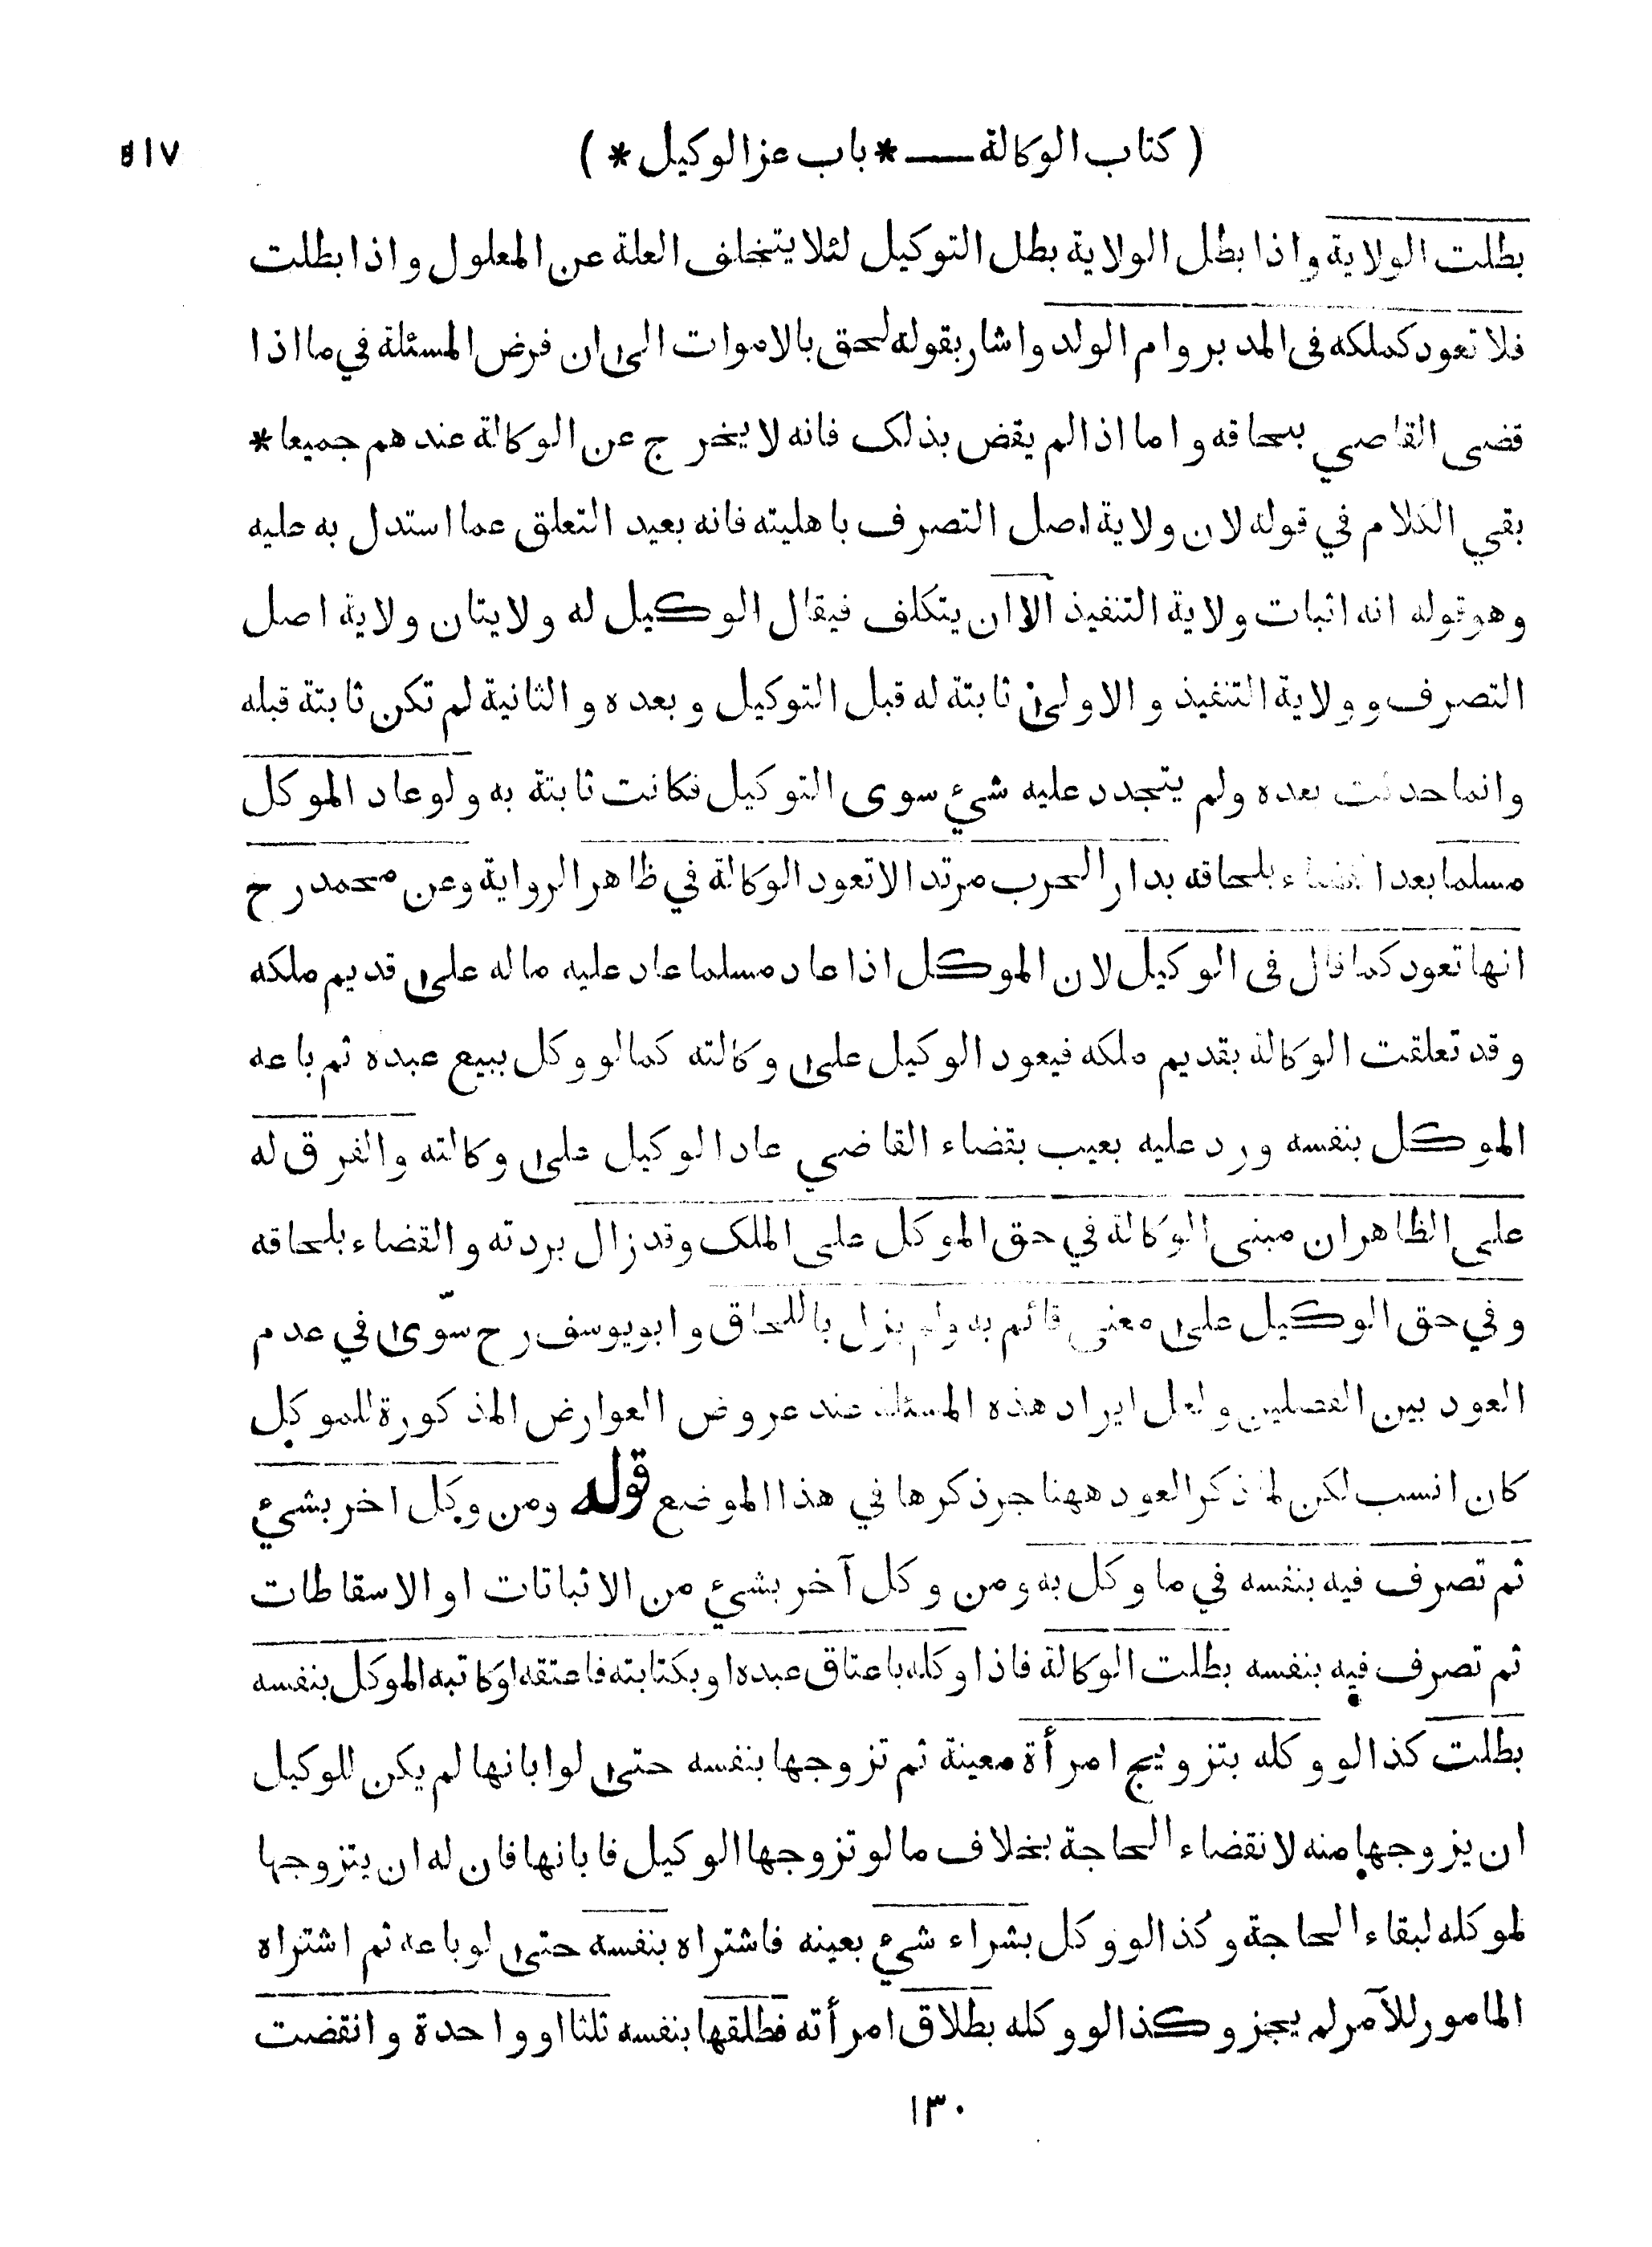 ( كتاب الوكالة — * باب عزالوكيل * )
٥١٧
بطلت الولاية واذا بطل الولاية بطل التوكيل لئلا يتخلف العلة عن المعلول واذا بطلت
فلا تعود كملكه فى المدبر وام الولد واشار بقوله لحق بالاموات الى ان فرض المسئلة في ما اذا
قضى القاضي بلحاقه واما اذا لم يقض بذلك فانه لا يخرج عن الوكالة عندهم جميعا *
بقي الكلام في قوله لان ولاية اصل التصرف باهليته فانه بعيد التعلق عما استدل به عليه
وهو قوله انه اثبات ولاية التنفيذ الا ان يتكلف فيقال الوكيل له ولايتان ولاية اصل
التصرف وولاية التنفيذ والاولى ثابتة له قبل التوكيل وبعده والثانية لم تكن ثابتة قبله
وانما حدثت بعده ولم يتجدد عليه شيء سوى التوكيل فكانت ثابتة به ولو عاد الموكل
مسلما بعد القضاء بلحاقه بدار الحرب مرتدا لا تعود الوكالة في ظاهر الرواية وعن محمد رح
انها تعود كما قال فى الوكيل لان الموكل اذا عاد مسلما عاد عليه ماله على قديم ملكه
وقد تعلقت الوكالة بقديم ملكه فيعود الوكيل على وكالته كما لو وكل ببيع عبده ثم باعه
الموكل بنفسه ورد عليه بعيب بقضاء القاضي عاد الوكيل على وكالته والفرق له
على الظاهر ان مبنى الوكالة في حق الموكل على الملك وقد زال بردته والقضاء بلحاقه
وفي حق الوكيل على معنى قائم به ولم يزل باللحاق وابويوسف رح سوّى في عدم
العود بين الفصلين ولعل ايراد هذه المسئلة عند عروض العوارض المذكورة للموكل
كان انسب لكن لما ذكر العود ههنا جر ذكرها في هذا الموضع قوله ومن وكل اخر بشيء
ثم تصرف فيه بنفسه في ما وكل به ومن وكل آخر بشيء من الاثباتات او الاسقاطات
ثم تصرف فيه بنفسه بطلت الوكالة فاذا وكله باعتاق عبده او بكتابته فاعتقه او كاتبه الموكل بنفسه
بطلت كذا لو وكله بتزويج امرأة معينة ثم تزوجها بنفسه حتى لو ابانها لم يكن للوكيل
ان يزوجها منه لانقضاء الحاجة بخلاف ما لو تزوجها الوكيل فابانها فان له ان يتزوجها
لموكله لبقاء الحاجة وكذا لو وكل بشراء شيء بعينه فاشتراه بنفسه حتى لو باعه ثم اشتراه
المامور للآمر لم يجز وكذا لو وكله بطلاق امرأته فطلقها بنفسه ثلثا او واحدة وانقضت
١٣٠